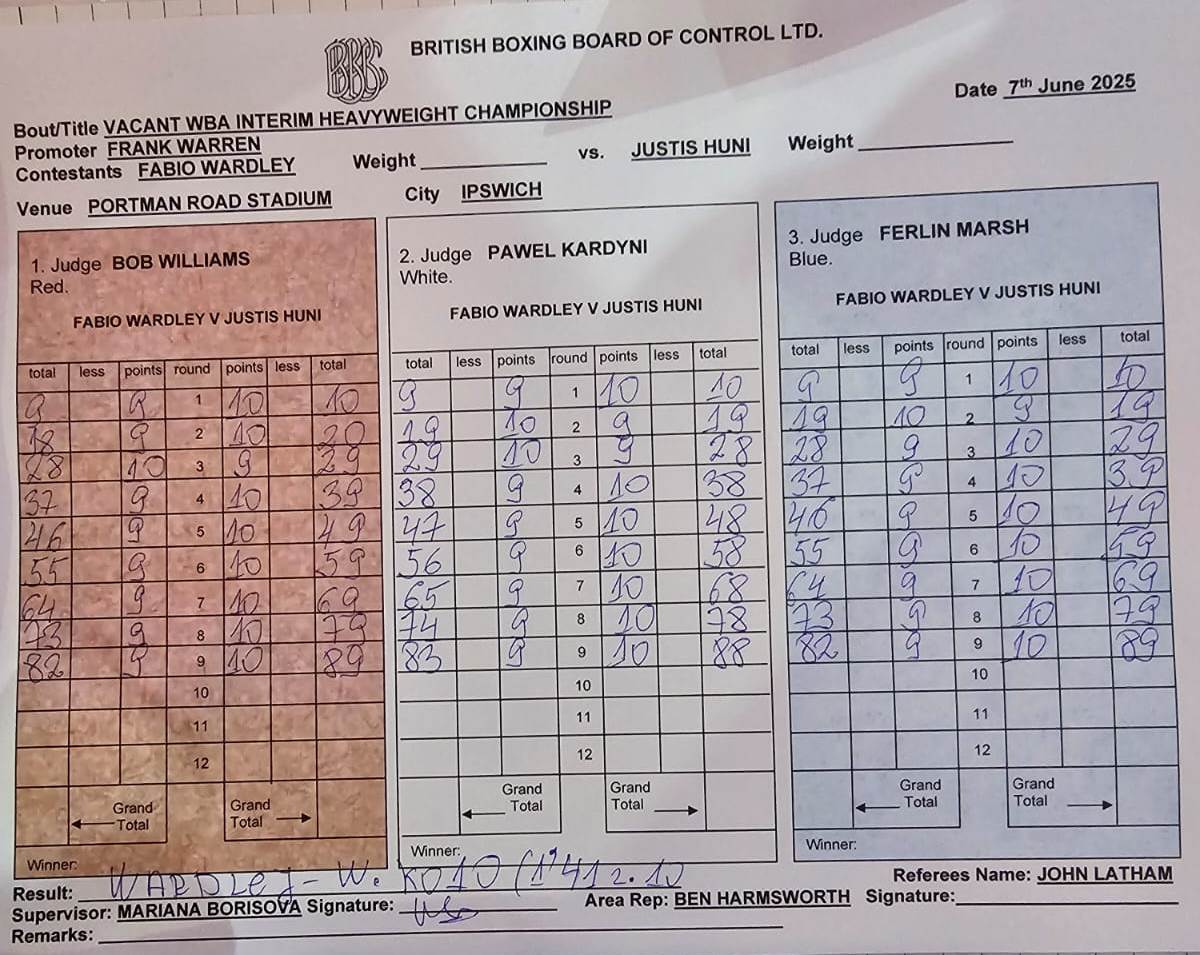 BBBC
BRITISH BOXING BOARD OF CONTROL LTD.
Date 7th June 2025
Bout/Title VACANT WBA INTERIM HEAVYWEIGHT CHAMPIONSHIP
Promoter FRANK WARREN
Contestants FABIO WARDLEY Weight vs. JUSTIS HUNI Weight
Venue PORTMAN ROAD STADIUM City IPSWICH
1. Judge BOB WILLIAMS
Red.
FABIO WARDLEY V JUSTIS HUNI
total less points round points less total
9 9 1 10 10
18 9 2 10 20
28 10 3 9 29
37 9 4 10 39
46 9 5 10 49
55 9 6 10 59
64 9 7 10 69
73 9 8 10 79
82 9 9 10 89
10
11
12
Grand Total Grand Total
Winner:
2. Judge PAWEL KARDYNI
White.
FABIO WARDLEY V JUSTIS HUNI
total less points round points less total
9 9 1 10 10
19 10 2 9 19
29 10 3 9 28
38 9 4 10 38
47 9 5 10 48
56 9 6 10 58
65 9 7 10 68
74 9 8 10 78
83 9 9 10 88
10
11
12
Grand Total Grand Total
Winner:
3. Judge FERLIN MARSH
Blue.
FABIO WARDLEY V JUSTIS HUNI
total less points round points less total
9 9 1 10 10
19 10 2 9 19
28 9 3 10 29
37 9 4 10 39
46 9 5 10 49
55 9 6 10 59
64 9 7 10 69
73 9 8 10 79
82 9 9 10 89
10
11
12
Grand Total Grand Total
Winner:
Result: WARDLEY - W. KO10 (1'41 r. 10
Referees Name: JOHN LATHAM
Supervisor: MARIANA BORISOVA Signature: Area Rep: BEN HARMSWORTH Signature:
Remarks: